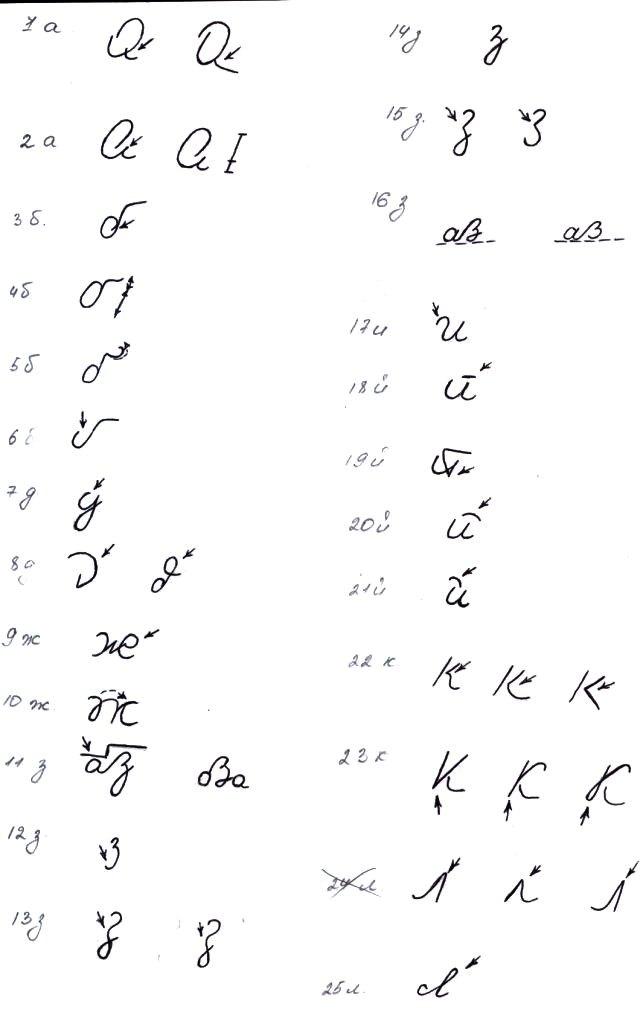 1 а а а
2 а а а
3 б. б
4 б б
5 б б
6 б
7 д д
8 д д
9 ж ж
10 ж ж
11 з аз оза
12 з з
13 з з з
14 з з
15 з. з з
16 з аз аз
17 и и
18 й й
19 й й
20 й й
21 й й
22 к к к к
23 к к к к
24 л л л л
25 л. л